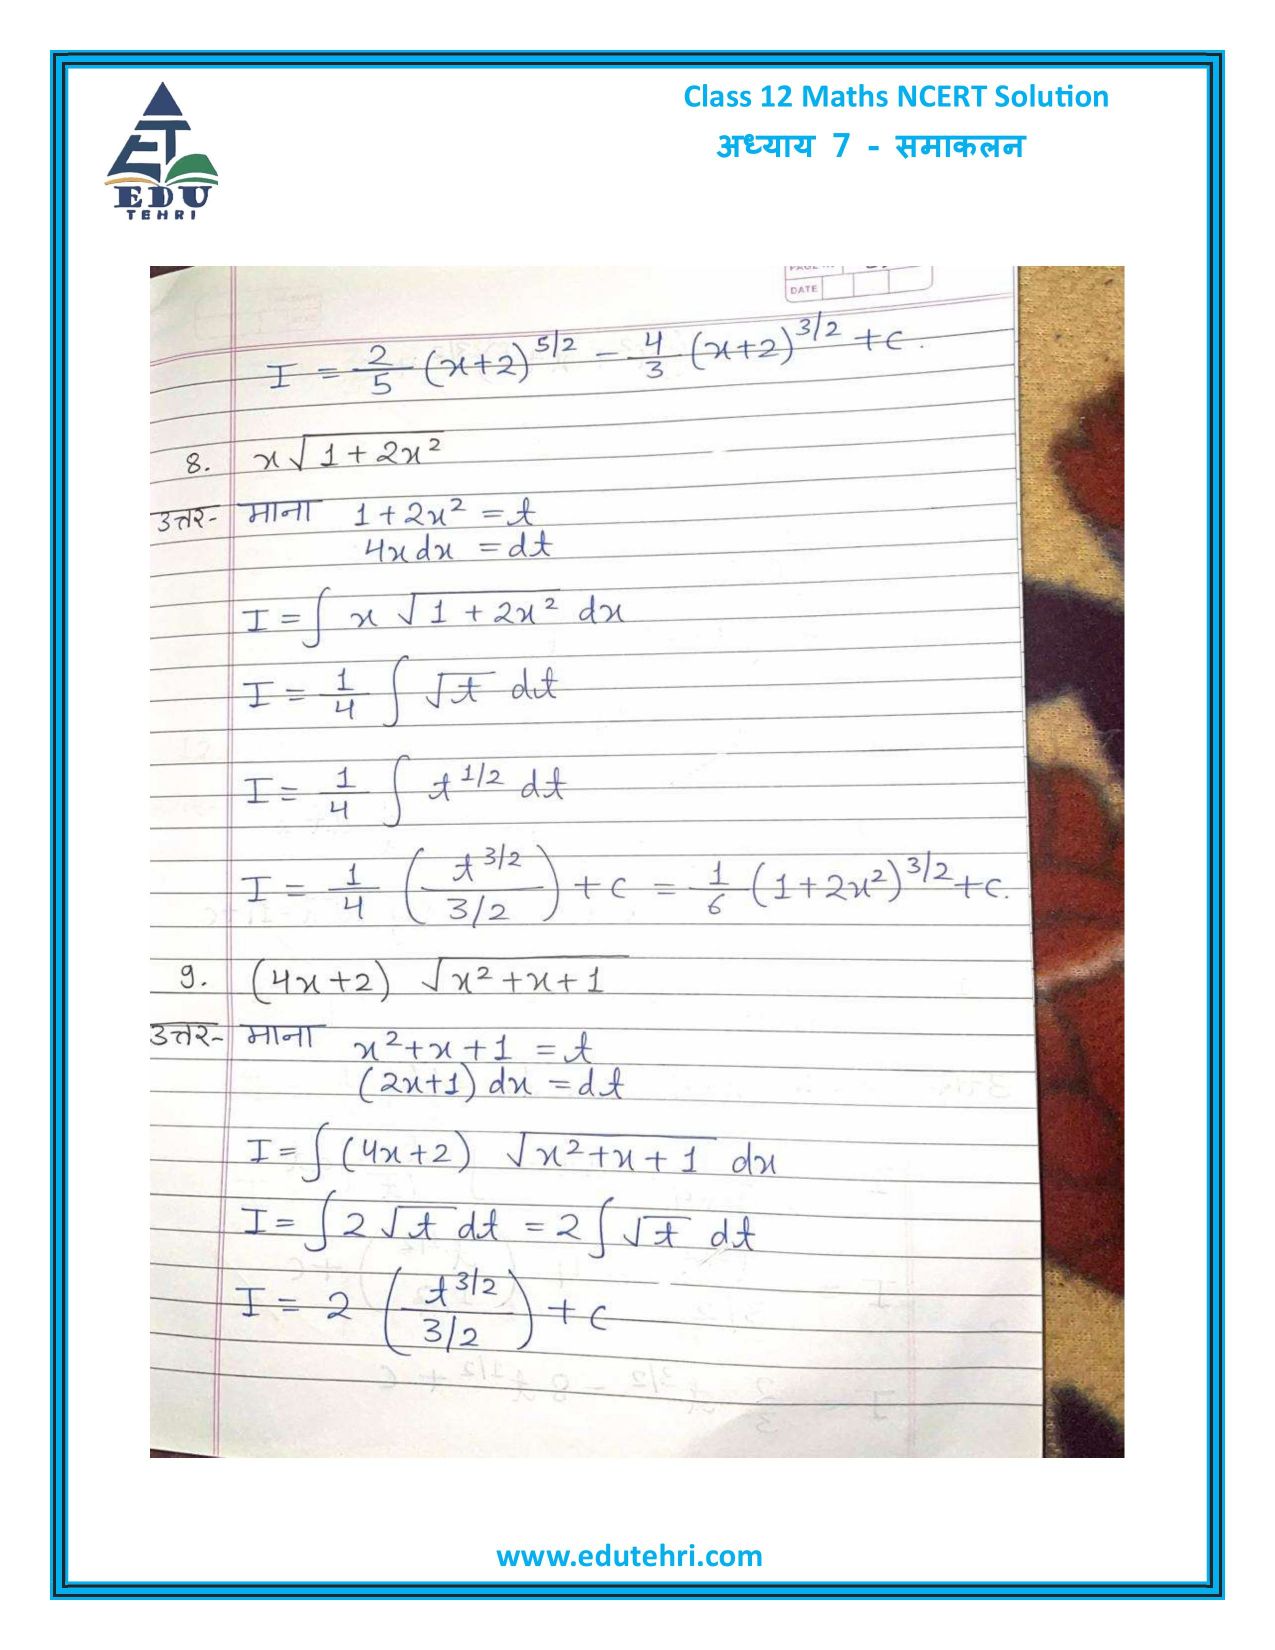 Class 12 Maths NCERT Solution
अध्याय 7 - समाकलन
EDU
TEHRI
DATE
I = 2/5 (x+2)^5/2 - 4/3 (x+2)^3/2 + c.
8. x√1+2x²
उत्तर- माना 1+2x² = t
4x dx = dt
I = ∫ x √1+2x² dx
I = 1/4 ∫ √t dt
I = 1/4 ∫ t^1/2 dt
I = 1/4 (t^3/2 / 3/2) + c = 1/6 (1+2x²)^3/2 + c.
9. (4x+2) √x²+x+1
उत्तर- माना x²+x+1 = t
(2x+1) dx = dt
I = ∫ (4x+2) √x²+x+1 dx
I = ∫ 2√t dt = 2 ∫ √t dt
I = 2 (t^3/2 / 3/2) + c
www.edutehri.com